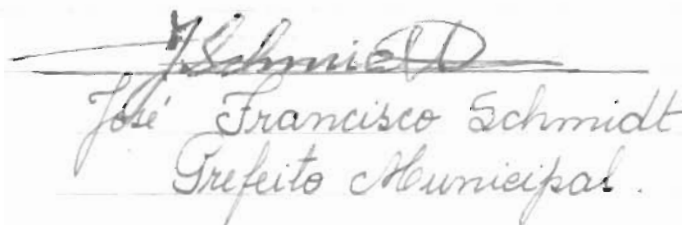 JSchmidt
José Francisco Schmidt
Prefeito Municipal.